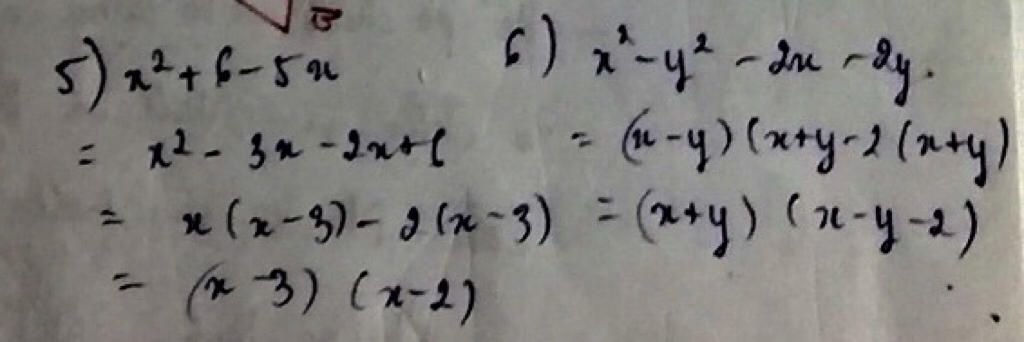 B
5) x² + 6 - 5x
= x² - 3x - 2x + 6
= x(x - 3) - 2(x - 3)
= (x - 3) (x - 2)
6) x² - y² - 2x - 2y.
= (x - y) (x + y - 2 (x + y)
= (x + y) (x - y - 2)